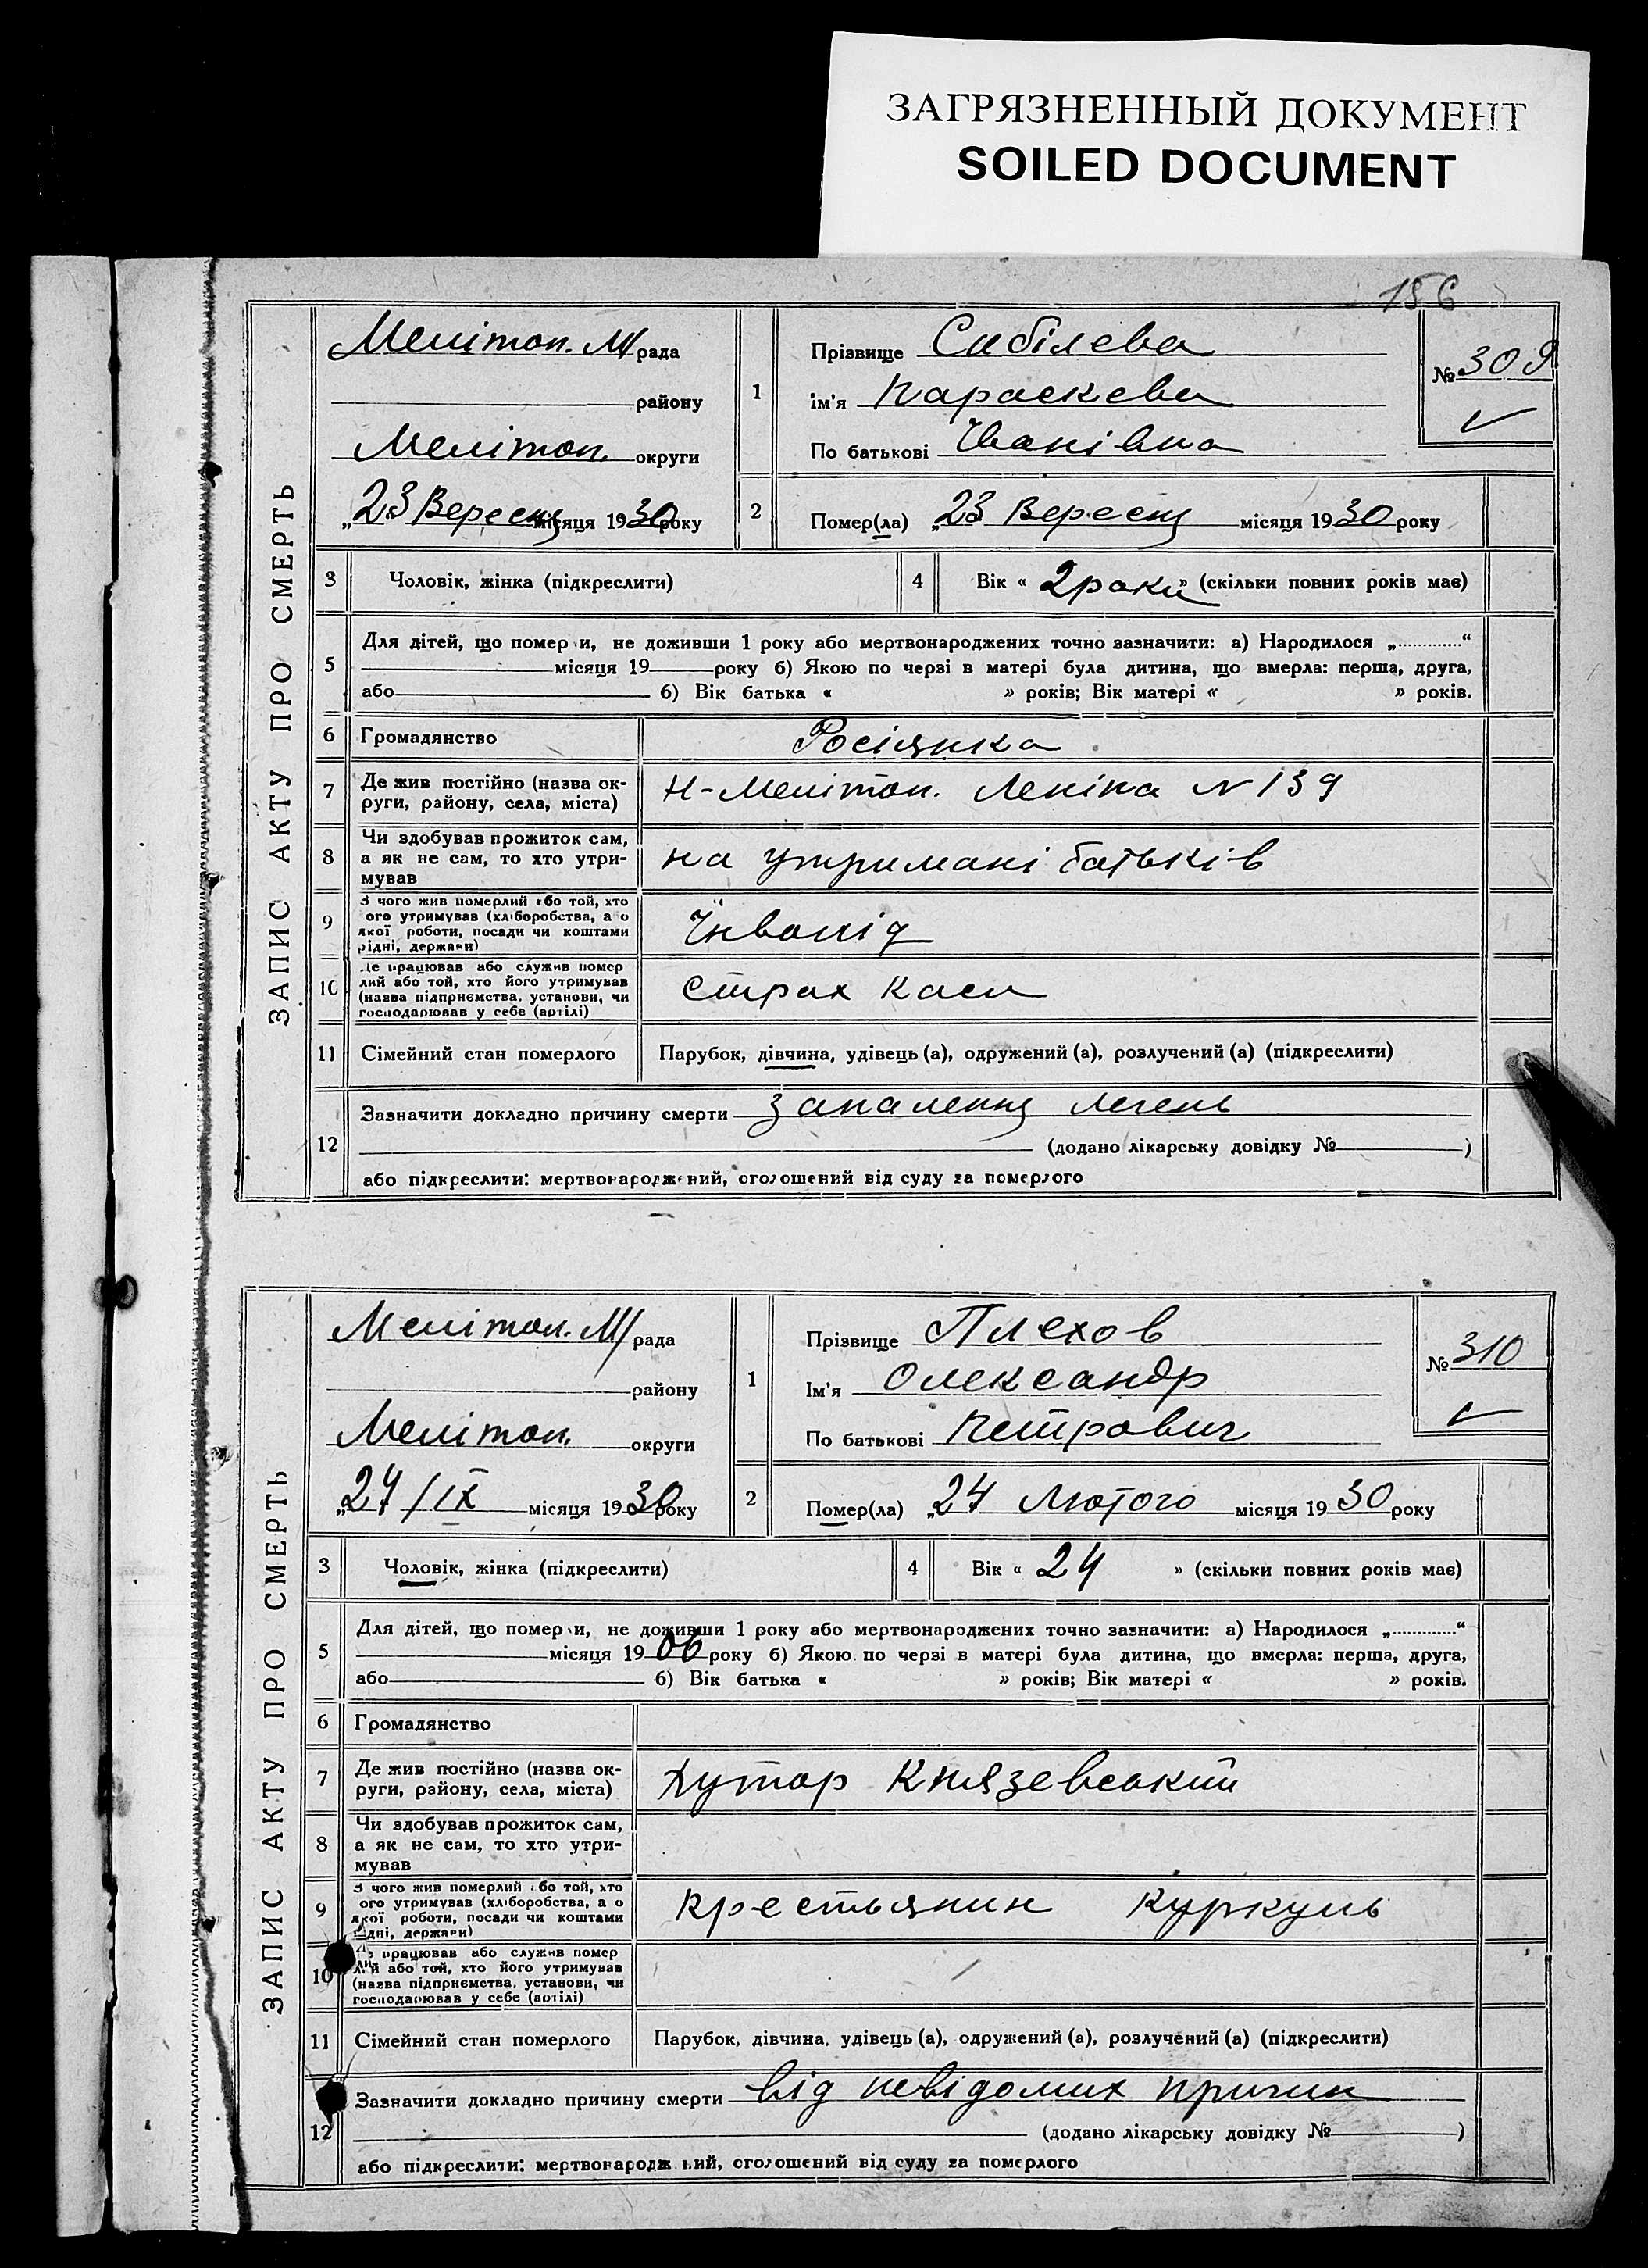 ЗАГРЯЗНЕННЫЙ ДОКУМЕНТ
SOILED DOCUMENT
156
ЗАПИС АКТУ ПРО СМЕРТЬ
Мелітоп. М/рада
району
Мелітоп. округи
„23 Вересня місяця 1930 року
1
Прізвище Сибілева
ім'я Параскева
По батькові Іванівна
№ 309
2
Помер(ла) „23 Вересня місяця 1930 року
3 Чоловік, жінка (підкреслити)
4 Вік « 2 роки » (скільки повних років має)
5 Для дітей, що померли, не доживши 1 року або мертвонароджених точно зазначити: а) Народилося „............“
місяця 19 року б) Якою по черзі в матері була дитина, що вмерла: перша, друга,
або б) Вік батька « » років; Вік матері « » років.
6 Громадянство Росіянка
7 Де жив постійно (назва ок-
руги, району, села, міста) Н-Мелітоп. Леніна № 139
8 Чи здобував прожиток сам,
а як не сам, то хто утри-
мував на утримані батьків
9 З чого жив померлий або той, хто
ого утримував (хліборобства, а о
якої роботи, посади чи коштами
рідні, держави) Інвалід
10 Де працював або служив помер
лий або той, хто його утримував
(назва підприємства, установи, чи
господарював у себе (артілі) Страх Каси
11 Сімейний стан померлого Парубок, дівчина, удівець (а), одружений (а), розлучений (а) (підкреслити)
12 Зазначити докладно причину смерти Запалення легень
(додано лікарську довідку № )
або підкреслити: мертвонароджений, оголошений від суду за померлого
ЗАПИС АКТУ ПРО СМЕРТЬ
Мелітоп. М/рада
району
Мелітоп. округи
„24/IX місяця 1930 року
1
Прізвище Плехов
Ім'я Олександр
По батькові Петрович
№ 310
2
Помер(ла) „24 Лютого місяця 1930 року
3 Чоловік, жінка (підкреслити)
4 Вік « 24 » (скільки повних років має)
5 Для дітей, що померли, не доживши 1 року або мертвонароджених точно зазначити: а) Народилося „............“
місяця 1906 року б) Якою по черзі в матері була дитина, що вмерла: перша, друга,
або б) Вік батька « » років; Вік матері « » років.
6 Громадянство
7 Де жив постійно (назва ок-
руги, району, села, міста) Хутор Князевський
8 Чи здобував прожиток сам,
а як не сам, то хто утри-
мував
9 З чого жив померлий або той, хто
ого утримував (хліборобства, а о
якої роботи, посади чи коштами
рідні, держави) Крестьянин Куркуль
10 Де працював або служив помер
лий або той, хто його утримував
(назва підприємства, установи, чи
господарював у себе (артілі)
11 Сімейний стан померлого Парубок, дівчина, удівець (а), одружений (а), розлучений (а) (підкреслити)
12 Зазначити докладно причину смерти від невідомих причин
(додано лікарську довідку № )
або підкреслити: мертвонароджений, оголошений від суду за померлого